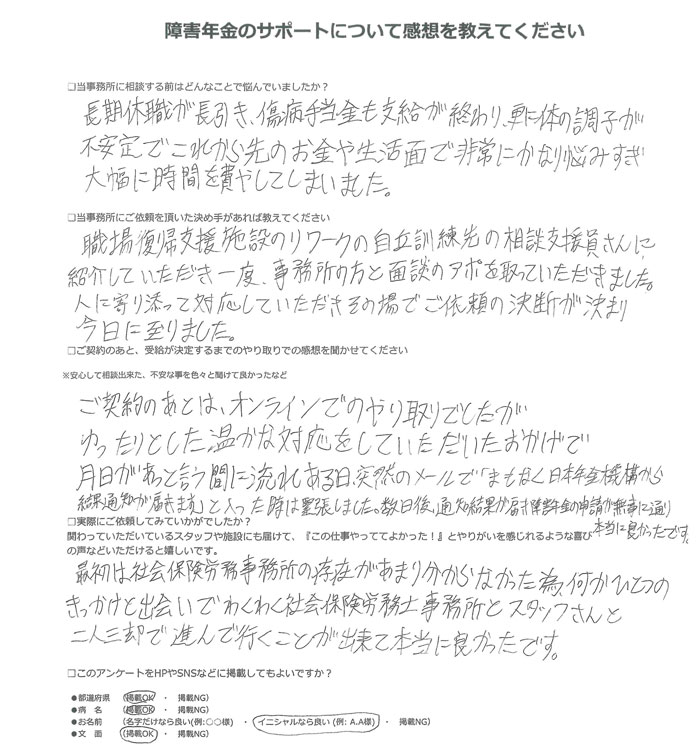 障害年金のサポートについて感想を教えてください
□当事務所に相談する前はどんなことで悩んでいましたか？
長期休職が長引き、傷病手当金も支給が終わり、更に体の調子が
不安定でこれから先のお金や生活面で非常にかなり悩みすぎ
大幅に時間を費やしてしまいました。
□当事務所にご依頼を頂いた決め手があれば教えてください
職場復帰支援施設のリワークの自立訓練先の相談支援員さんに
紹介していただき一度、事務所の方と面談のアポを取っていただきました。
人に寄り添って対応していただきその場でご依頼の決断が決まり
今日に至りました。
□ご契約のあと、受給が決定するまでのやり取りでの感想を聞かせてください
※安心して相談出来た、不安な事を色々と聞けて良かったなど
ご契約のあとは、オンラインでのやり取りでしたが
ゆったりとした温かな対応をしていただいたおかげで
月日があっと言う間に流れある日、突然のメールで「まもなく日本年金機構から
結果通知が届きます」と入った時は緊張しました。数日後、通知結果が届き障害年金の申請が無事に通り
本当に良かったです。
□実際にご依頼してみていかがでしたか？
関わっていただいているスタッフや施設にも届けて、『この仕事やっててよかった！』とやりがいを感じれるような喜び
の声などいただけると嬉しいです。
最初は社会保険労務事務所の存在があまり分からなかった為、何かひとつの
きっかけと出会いでわくわく社会保険労務士事務所とスタッフさんと
二人三却で進んで行くことが出来て本当に良かったです。
□このアンケートをHPやSNSなどに掲載してもよいですか？
●都道府県 （掲載OK ・ 掲載NG）
●病 名 （掲載OK ・ 掲載NG）
●お名前 （名字だけなら良い(例:○○様) ・ イニシャルなら良い (例: A.A様) ・ 掲載NG）
●文 面 （掲載OK ・ 掲載NG）